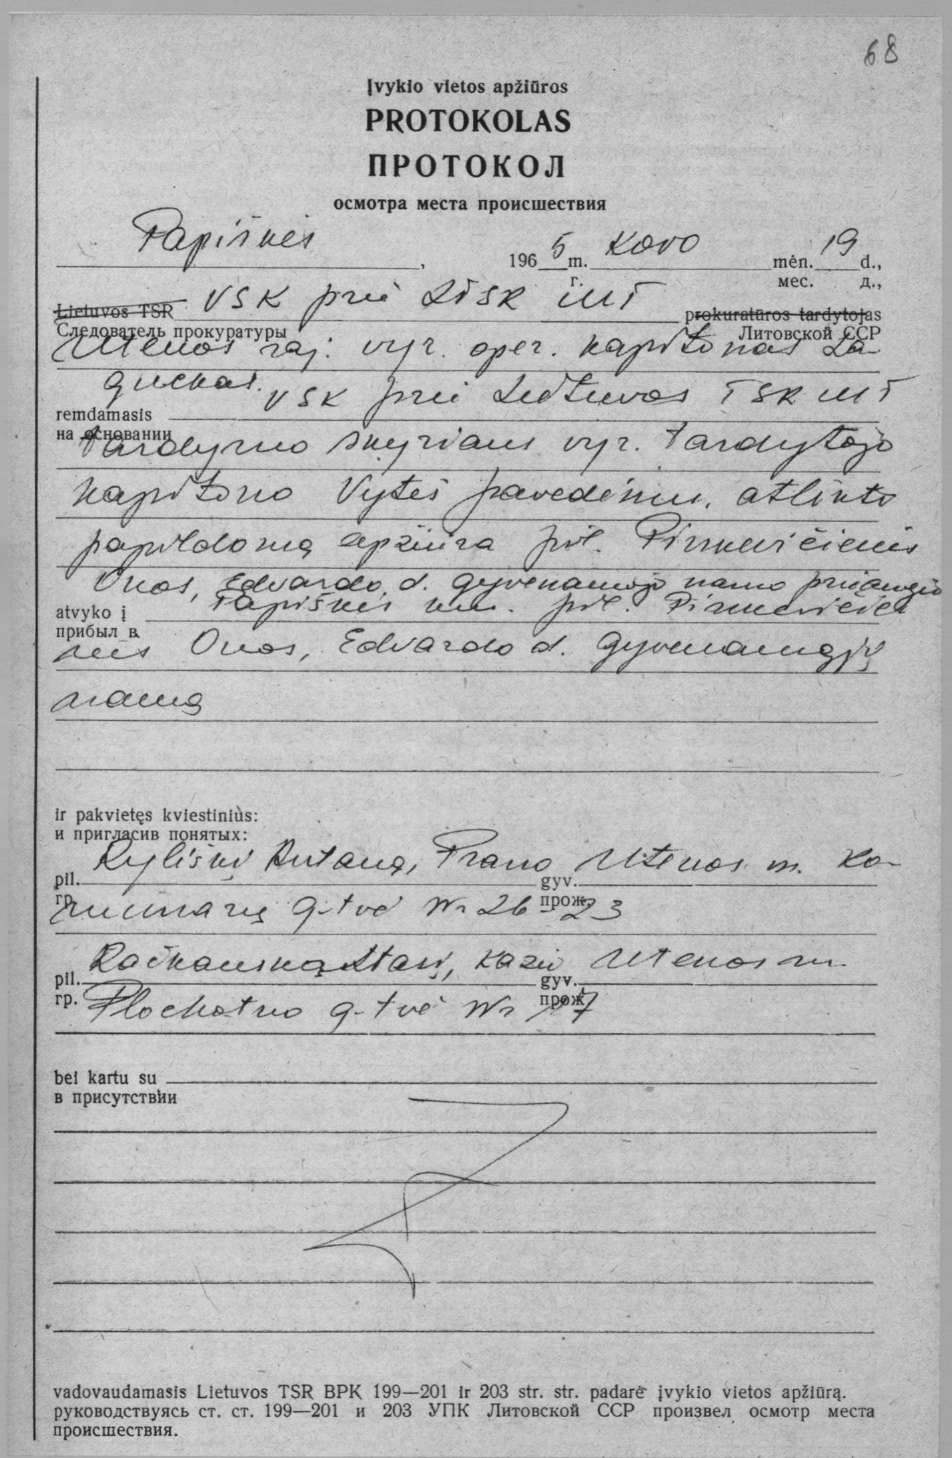 68
Įvykio vietos apžiūros
PROTOKOLAS
ПРОТОКОЛ
осмотра места происшествия
Papiškės, 1965 m. Kovo mėn. 19 d.,
г. мес. д.,
Lietuvos TSR VSK prie LTSR MT prokuratūros tardytojas
Следователь прокуратуры Литовской ССР
Utenos raj. vyr. oper. kapitonas
remdamasis VSK prie Lietuvos TSR MT
на основании
tardymo skyriaus vyr. tardytojo
kapitono Vytės pavedimu, atlikto
papildomą apžiūra pil. Pirmevičienės
Onos, Edvardo, d. gyvenamojo namo
atvyko į Papiškės km. pil. Pirmevičie
прибыл в
nės Onos, Edvardo d. gyvenamąjį
namą
ir pakvietęs kviestinius:
и пригласив понятых:
pil. Ryliškį Antaną, Prano gyv. Utenos m. Ko-
гр. прож.
munarų g-tvė Nr 26-23
pil. Račkauską Stasį, Kazio gyv. Utenos m.
гр. Plochotno g-tvė Nr 17 прож.
bei kartu su
в присутствии
vadovaudamasis Lietuvos TSR BPK 199—201 ir 203 str. str. padarė įvykio vietos apžiūrą.
руководствуясь ст. ст. 199—201 и 203 УПК Литовской ССР произвел осмотр места
происшествия.